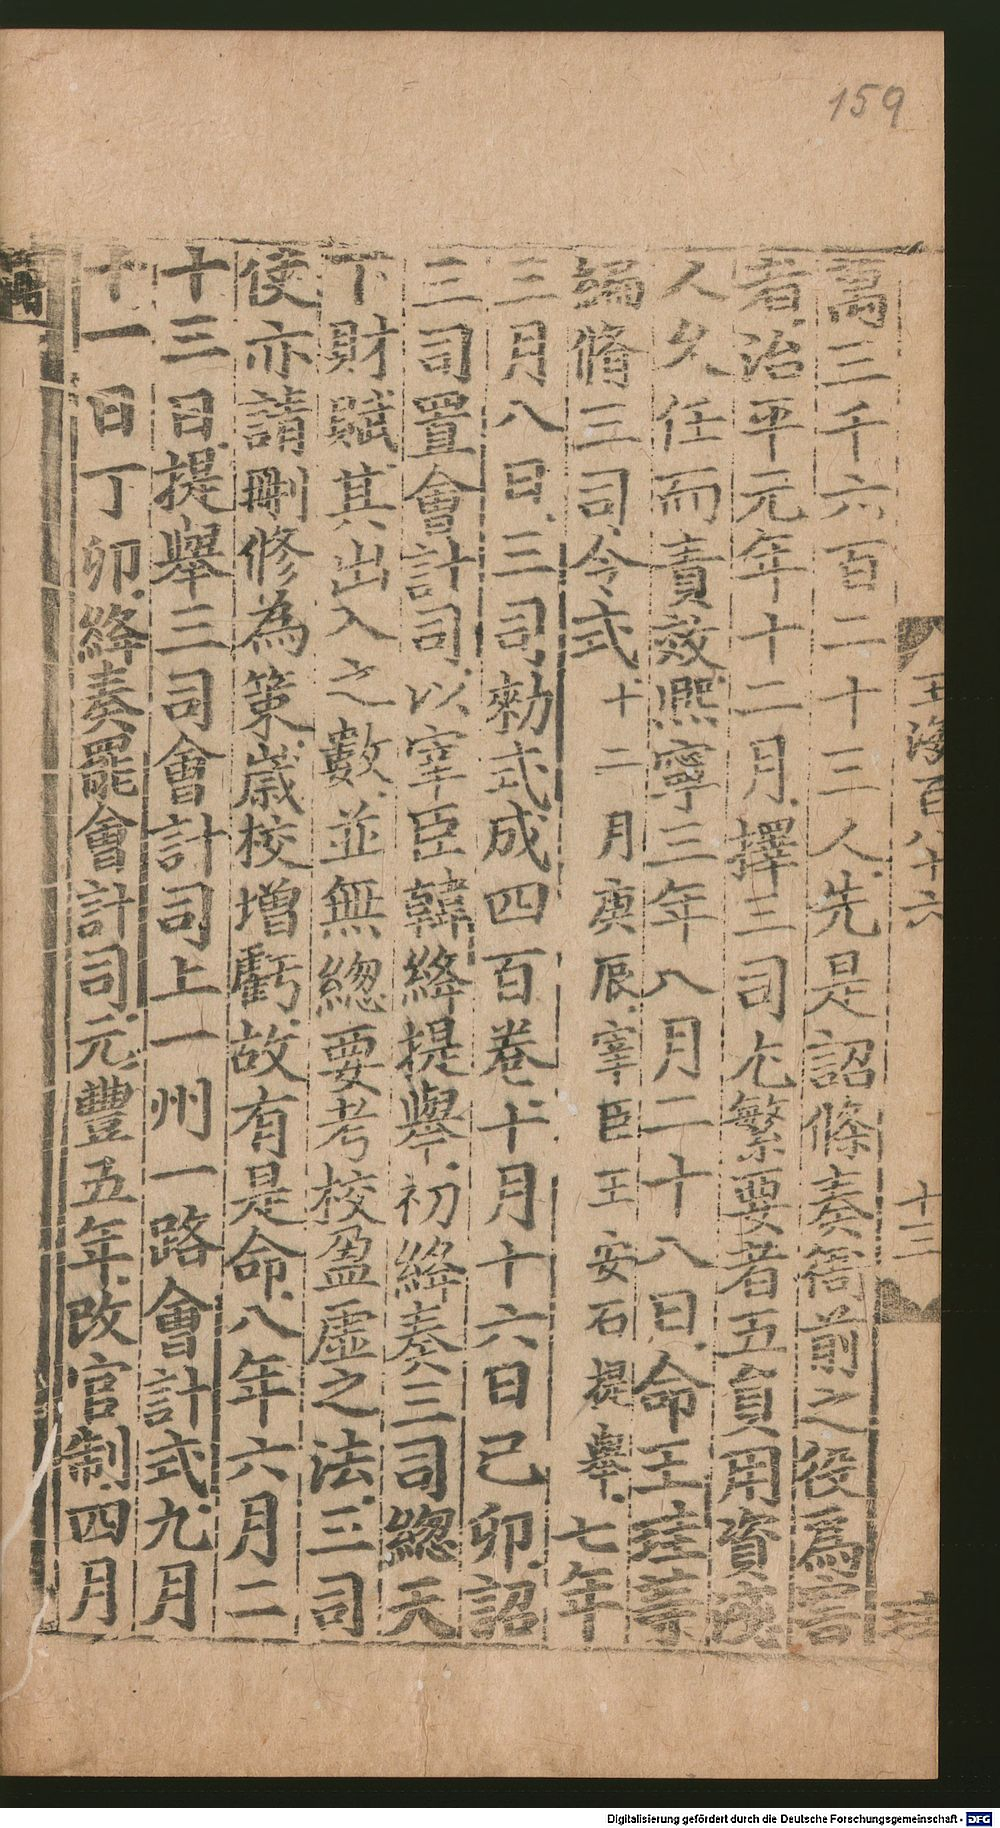 159
玉海百八十六
十三
萬三千六百二十三人先是詔條奏衙前之役爲害
者治平元年十二月擇三司尤繁要者五員用資淺
人久任而責效熙寧三年八月二十八日命王珪等
編脩三司令式十二月庚辰宰臣王安石提舉七年
三月八日三司勑式成四百卷十月十六日己卯詔
三司置會計司以宰臣韓絳提舉初絳奏三司總天
下財賦其出入之數並無總要考校盈虛之法三司
使亦請刪修為策歲校增虧故有是命八年六月二
十三日提舉三司會計司上一州一路會計式九月
十一日丁卯絳奏罷會計司元豐五年改官制四月
Digitalisierung gefördert durch die Deutsche Forschungsgemeinschaft - DFG